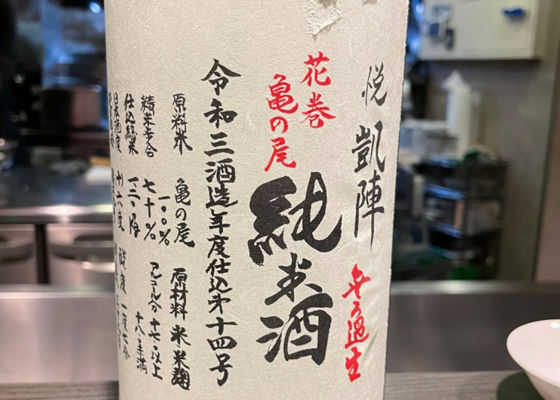 悦 凱陣
無ろ過生
花巻
亀の尾
純米酒
令和三酒造年度仕込第十四号
原料米 亀の尾 一〇〇% 原材料 米 米麹
精米歩合 七十% アルコール分 十七以上
十八度未満
仕込総米